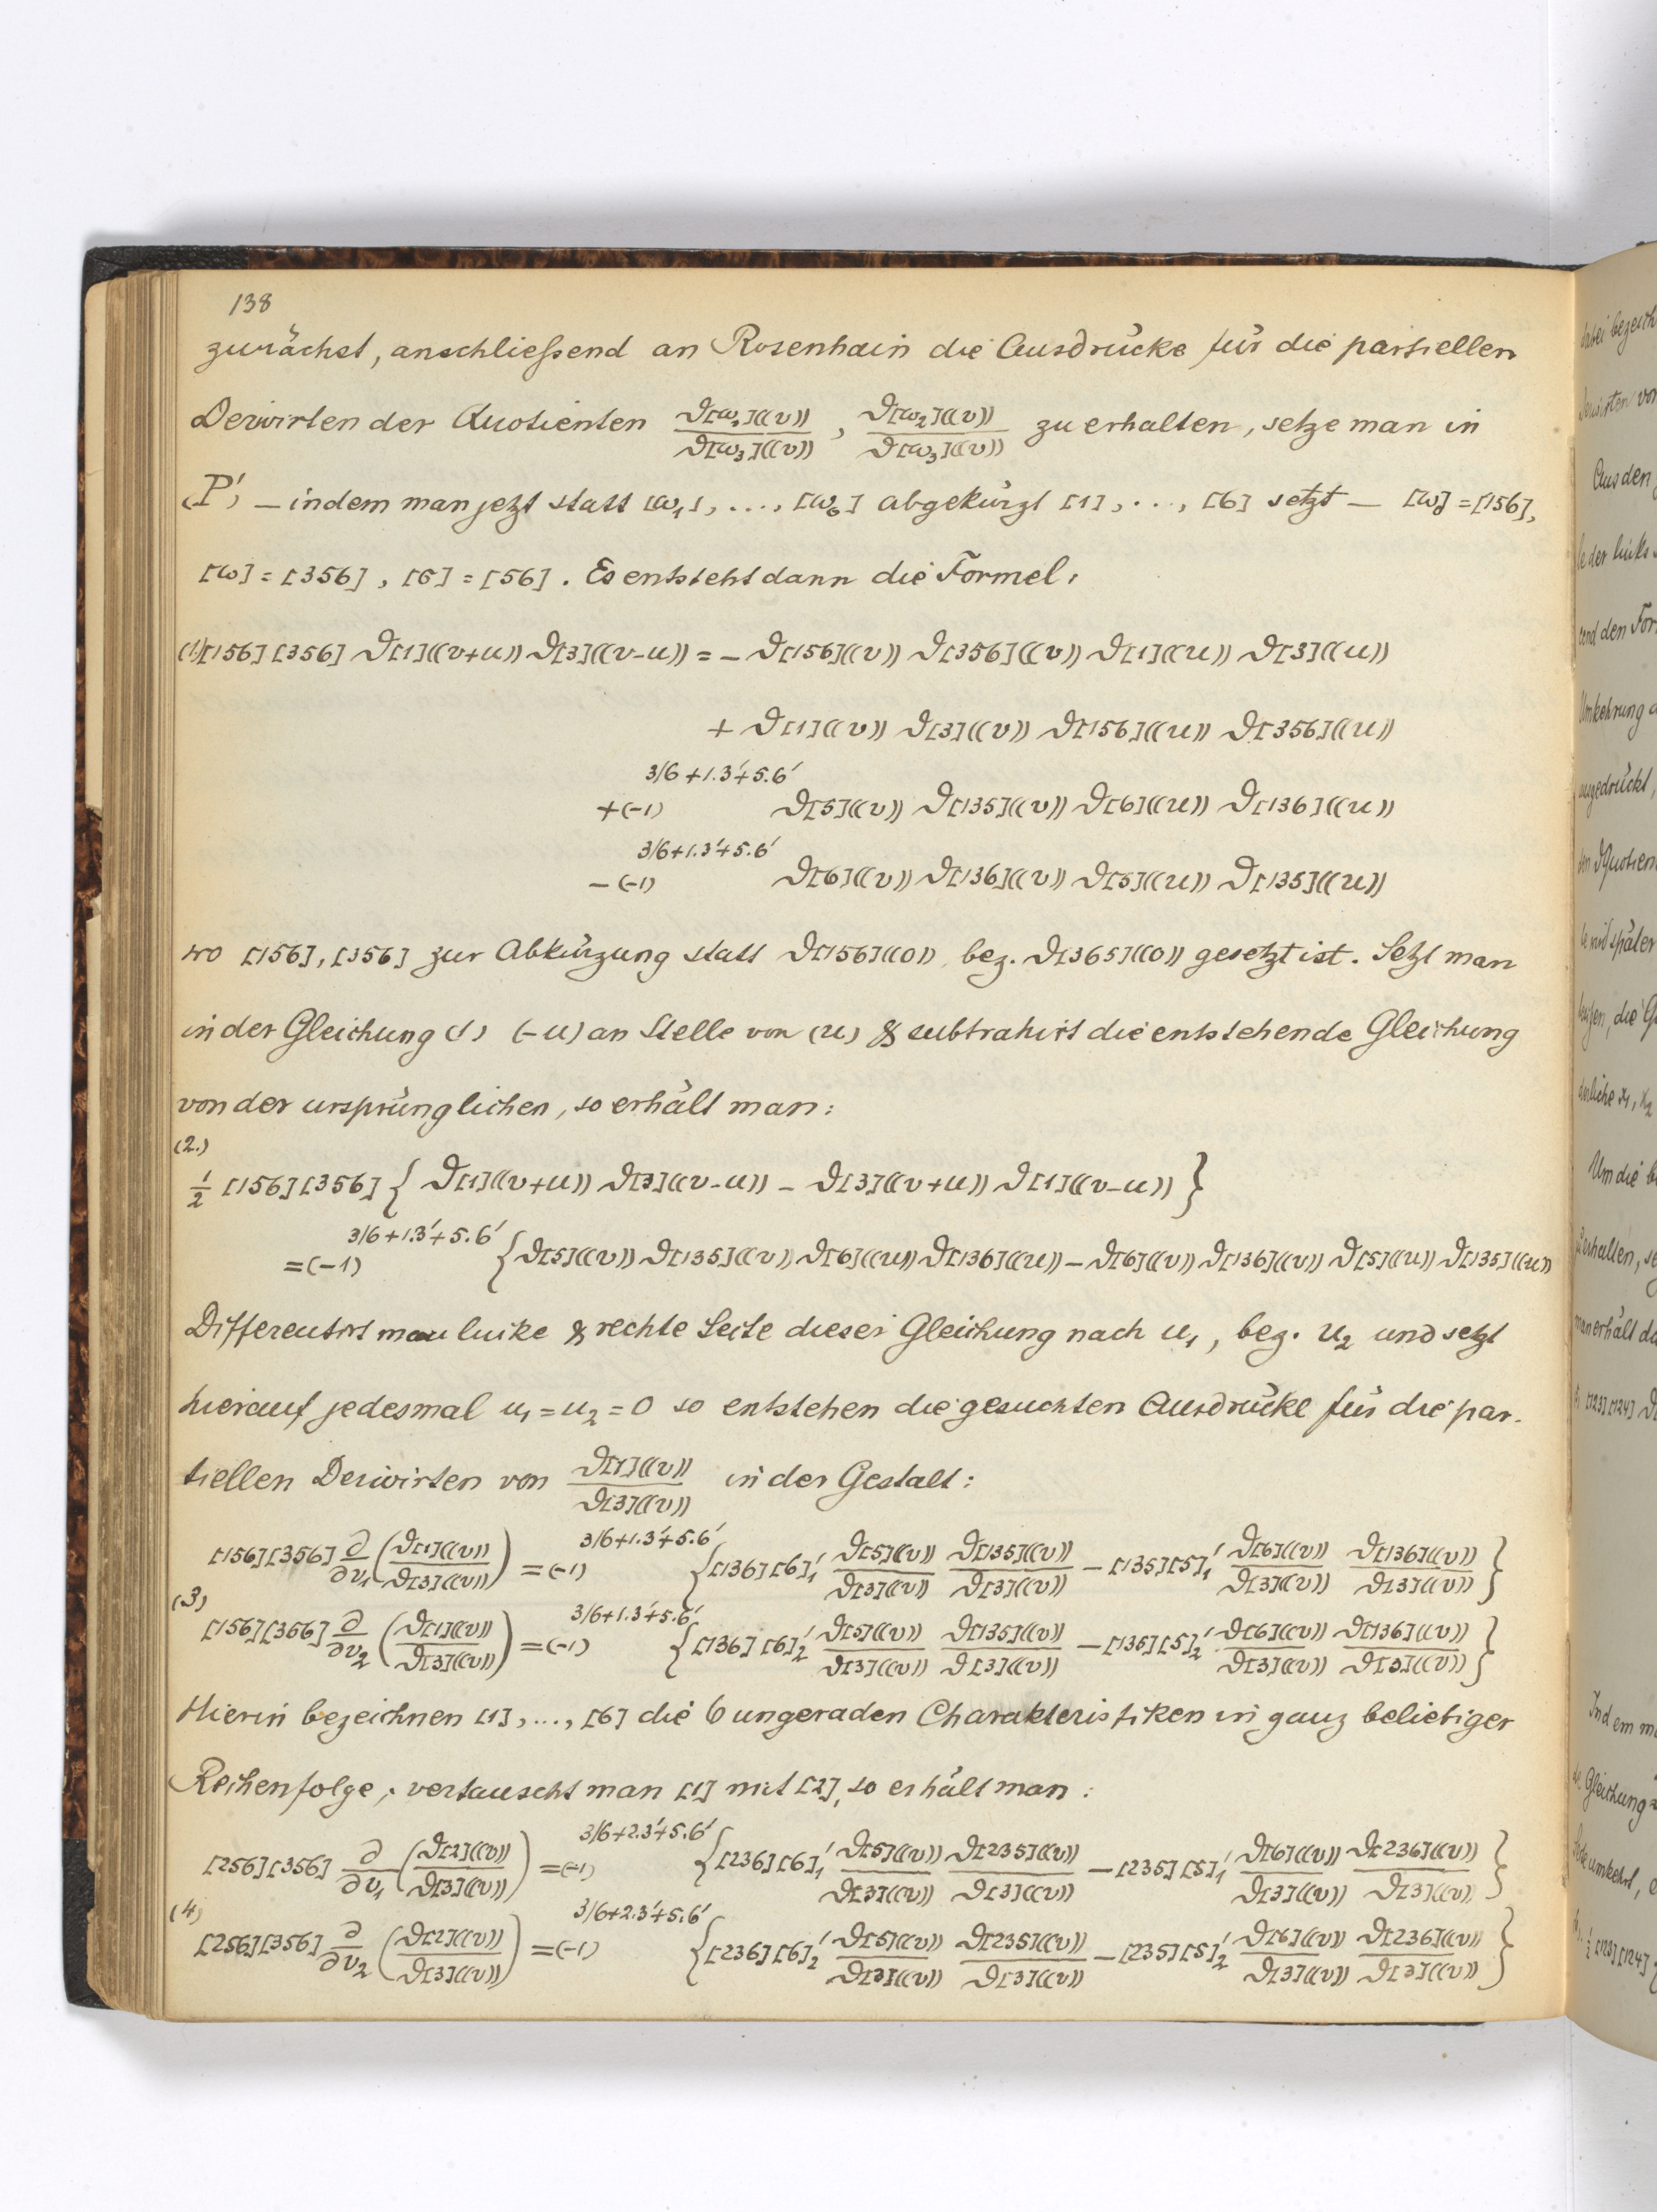 138
zunächst, anschließend an Rosenhain die Ausdrücke für die partiellen
Derivirten der Quotienten ϑ[ω₁]((v))/ϑ[ω₃]((v)), ϑ[ω₂]((v))/ϑ[ω₃]((v)) zu erhalten, setze man in
(P') – indem man jetzt statt [ω₁], ..., [ω₆] abgekürzt [1], ..., [6] setzt – [ω₀] = [156],
[ω] = [356], [σ] = [56]. Es entsteht dann die Formel:
(1) [156][356] ϑ[1]((v+u)) ϑ[3]((v-u)) = – ϑ[156]((v)) ϑ[356]((v)) ϑ[1]((u)) ϑ[3]((u))
+ ϑ[1]((v)) ϑ[3]((v)) ϑ[156]((u)) ϑ[356]((u))
+ (-1)^{3/6+1.3'+5.6'} ϑ[5]((v)) ϑ[135]((v)) ϑ[6]((u)) ϑ[136]((u))
– (-1)^{3/6+1.3'+5.6'} ϑ[6]((v)) ϑ[136]((v)) ϑ[5]((u)) ϑ[135]((u))
wo [156], [356] zur Abkürzung statt ϑ[156]((0)), bez. ϑ[365]((0)) gesetzt ist. Setzt man
in der Gleichung (1) (-u) an Stelle von (u) & subtrahirt die entstehende Gleichung
von der ursprünglichen, so erhält man:
(2.)
½ [156][356] { ϑ[1]((v+u)) ϑ[3]((v-u)) – ϑ[3]((v+u)) ϑ[1]((v-u)) }
= (-1)^{3/6+1.3'+5.6'} { ϑ[5]((v)) ϑ[135]((v)) ϑ[6]((u)) ϑ[136]((u)) – ϑ[6]((v)) ϑ[136]((v)) ϑ[5]((u)) ϑ[135]((u))
Differentirt man linke & rechte Seite dieser Gleichung nach u₁, bez. u₂ und setzt
hierauf jedesmal u₁ = u₂ = 0 so entstehen die gesuchten Ausdrücke für die par-
tiellen Derivirten von ϑ[1]((v))/ϑ[3]((v)) in der Gestalt:
[156][356] ∂/∂v₁ (ϑ[1]((v))/ϑ[3]((v))) = (-1)^{3/6+1.3'+5.6'} { [136][6]₁' ϑ[5]((v))/ϑ[3]((v)) ϑ[135]((v))/ϑ[3]((v)) – [135][5]₁' ϑ[6]((v))/ϑ[3]((v)) ϑ[136]((v))/ϑ[3]((v)) }
(3)
[156][356] ∂/∂v₂ (ϑ[1]((v))/ϑ[3]((v))) = (-1)^{3/6+1.3'+5.6'} { [136][6]₂' ϑ[5]((v))/ϑ[3]((v)) ϑ[135]((v))/ϑ[3]((v)) – [135][5]₂' ϑ[6]((v))/ϑ[3]((v)) ϑ[136]((v))/ϑ[3]((v)) }
Hierin bezeichnen [1], ..., [6] die 6 ungeraden Charakteristiken in ganz beliebiger
Reihenfolge; vertauscht man [1] mit [2], so erhält man:
[256][356] ∂/∂v₁ (ϑ[2]((v))/ϑ[3]((v))) = (-1)^{3/6+2.3'+5.6'} { [236][6]₁' ϑ[5]((v))/ϑ[3]((v)) ϑ[235]((v))/ϑ[3]((v)) – [235][5]₁' ϑ[6]((v))/ϑ[3]((v)) ϑ[236]((v))/ϑ[3]((v)) }
(4)
[256][356] ∂/∂v₂ (ϑ[2]((v))/ϑ[3]((v))) = (-1)^{3/6+2.3'+5.6'} { [236][6]₂' ϑ[5]((v))/ϑ[3]((v)) ϑ[235]((v))/ϑ[3]((v)) – [235][5]₂' ϑ[6]((v))/ϑ[3]((v)) ϑ[236]((v))/ϑ[3]((v)) }
Aus den
der links
Umkehrung
später
die
Um die
erhalten
man erhält
[123][124]
Indem
Gleichung
umkehrt,
½ [123][124]